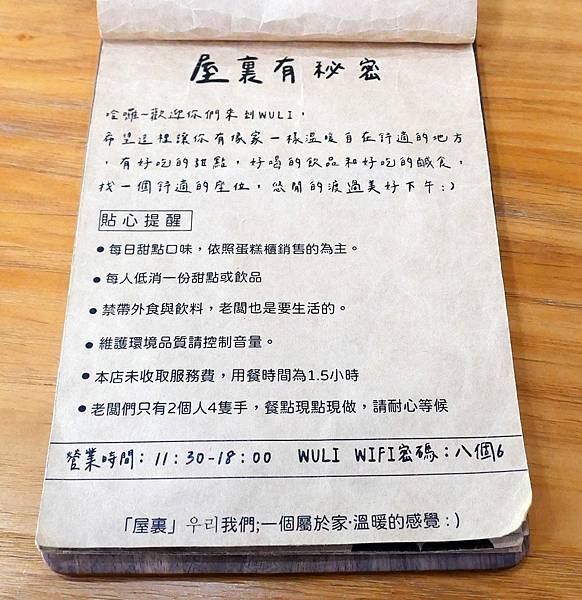 屋裏有秘密
哈囉~歡迎你們來到WULI，
希望這裡讓你有像家一樣溫暖自在舒適的地方
，有好吃的甜點，好喝的飲品和好吃的鹹食，
找一個舒適的座位，悠閒的渡過美好下午:)
貼心提醒
●每日甜點口味，依照蛋糕櫃銷售的為主。
●每人低消一份甜點或飲品
●禁帶外食與飲料，老闆也是要生活的。
●維護環境品質請控制音量。
●本店未收取服務費，用餐時間為1.5小時
●老闆們只有2個人4隻手，餐點現點現做，請耐心等候
營業時間：11：30-18：00 WULI WIFI密碼：八個6
「屋裏」우리我們;一個屬於家·溫暖的感覺:)